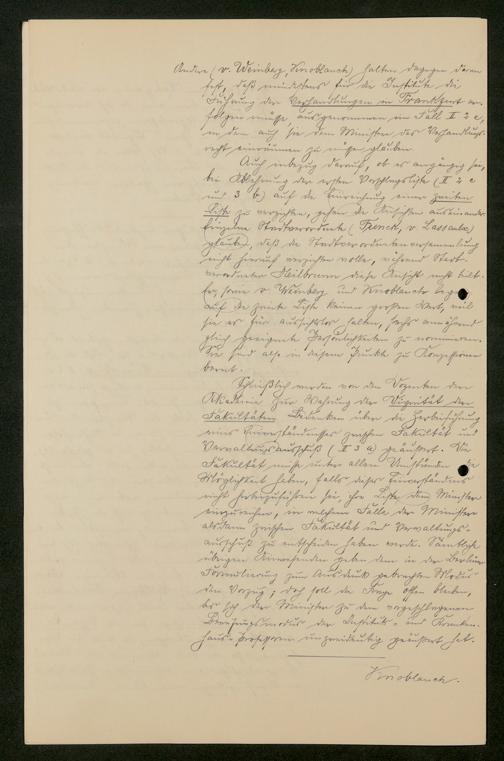 Andere (v. Weinberg, Knoblauch) halten dagegen daran
fest, daß mindestens für die Institute die
Führung der Verhandlungen in Frankfurt er-
folgen müsse, ausgenommen im Fall II 2 c,
in dem auch sie dem Minister das Verhandlungs-
recht einräumen zu müssen glauben.
Auch inbezug darauf, ob es angängig sei,
bei Ablehnung der ersten Vorschlagsliste (II 2 c
und 3 b) auf die Einreichung einer zweiten
Liste zu verzichten, gehen die Ansichten auseinander.
Einzelne Stadtverordnete (Funck, v. Lassaulx)
glauben, daß die Stadtverordnetenversammlung
nicht hierauf verzichten wolle, während Stadt-
verordneter Heilbrunn diese Ansicht nicht teilt.
Er, sowie v. Weinberg und Knoblauch legen
auf die zweite Liste keinen großen Wert, weil
sie es für aussichtslos halten, sechs annähernd
gleich geeignete Persönlichkeiten zu nominieren.
Sie sind also in diesem Punkte zu Konzessionen
bereit.
Schließlich werden von den Dozenten der
Akademie zur Wahrung der Dignität der
Fakultäten Bedenken über die Herbeiführung
eines Einverständnisses zwischen Fakultät und
Verwaltungsausschuß (II 3 a) geäußert. Die
Fakultät müsse unter allen Umständen die
Möglichkeit haben, falls dieses Einverständnis
nicht herbeizuführen sei, ihre Liste dem Minister
einzureichen, in welchem Falle der Minister
alsdann zwischen Fakultät und Verwaltungs-
ausschuß zu entscheiden haben werde. Sämtliche
übrigen Anwesenden geben dem in der Berliner
Formulierung zum Ausdruck gebrachten Modus
den Vorzug; doch soll die Frage offen bleiben,
bis sich der Minister zu dem vorgeschlagenen
Berufungsmodus der Instituts- und Kranken-
haus-Professoren unzweideutig geäußert hat.
Knoblauch.